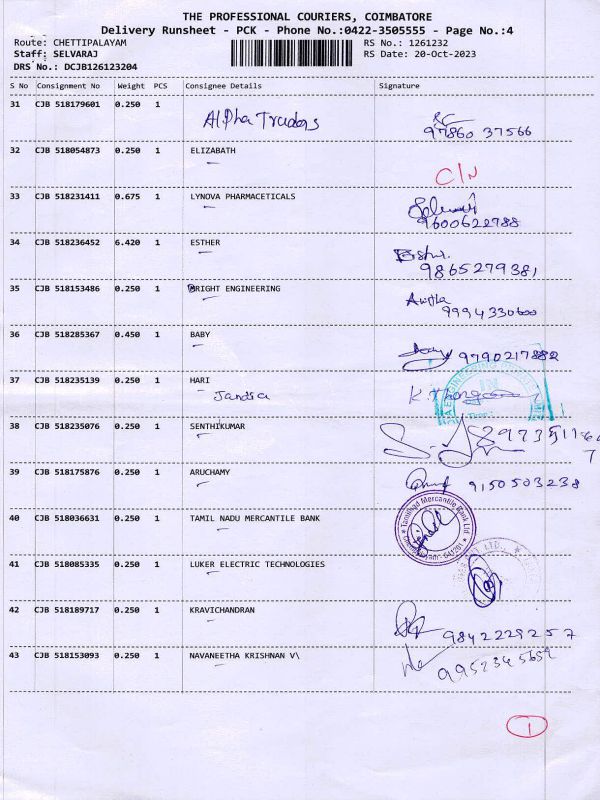 THE PROFESSIONAL COURIERS, COIMBATORE
Delivery Runsheet - PCK - Phone No.:0422-3505555 - Page No.:4
Route: CHETTIPALAYAM RS No.: 1261232
Staff: SELVARAJ RS Date: 20-Oct-2023
DRS No.: DCJB126123204
S No Consignment No Weight PCS Consignee Details Signature
31 CJB 518179601 0.250 1
Alpha Traders
97860 37566
32 CJB 518054873 0.250 1 ELIZABATH
C/N
33 CJB 518231411 0.675 1 LYNOVA PHARMACETICALS
9600622788
34 CJB 518236452 6.420 1 ESTHER
9865279381
35 CJB 518153486 0.250 1 BRIGHT ENGINEERING
9994330600
36 CJB 518285367 0.450 1 BABY
9790217882
37 CJB 518235139 0.250 1 HARI
38 CJB 518235076 0.250 1 SENTHIKUMAR
39 CJB 518175876 0.250 1 ARUCHAMY
9150503238
40 CJB 518036631 0.250 1 TAMIL NADU MERCANTILE BANK
Tamilnad Mercantile Bank Ltd
641201
41 CJB 518085335 0.250 1 LUKER ELECTRIC TECHNOLOGIES
42 CJB 518189717 0.250 1 KRAVICHANDRAN
9842229257
43 CJB 518153093 0.250 1 NAVANEETHA KRISHNAN V\
9952345659
1